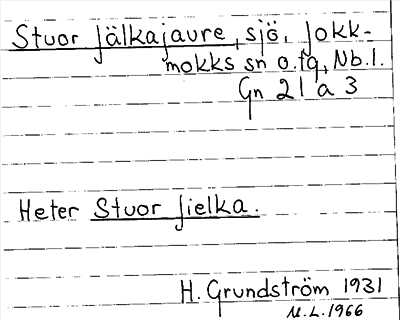 Stuor Jälkajaure, sjö, Jokk-
mokks sn o. tg, Nb. l.
Gn 21 a 3
Heter Stuor Jielka.
H. Grundström 1931
M.L. 1966